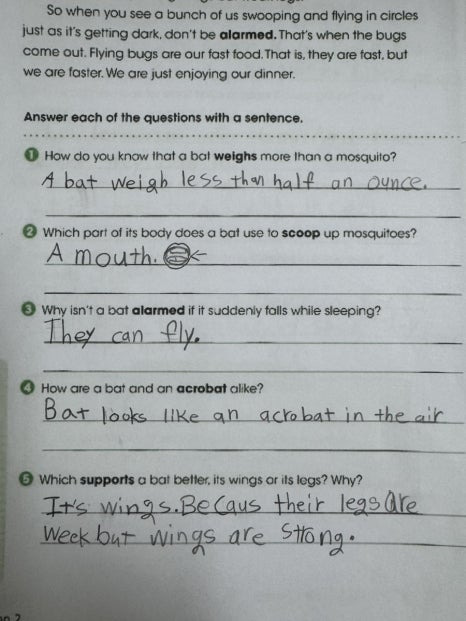 So when you see a bunch of us swooping and flying in circles
just as it's getting dark, don't be alarmed. That's when the bugs
come out. Flying bugs are our fast food. That is, they are fast, but
we are faster. We are just enjoying our dinner.
Answer each of the questions with a sentence.
1 How do you know that a bat weighs more than a mosquito?
A bat weigh less than half an ounce.
2 Which part of its body does a bat use to scoop up mosquitoes?
A mouth. ←
3 Why isn't a bat alarmed if it suddenly falls while sleeping?
They can fly.
4 How are a bat and an acrobat alike?
Bat looks like an acrobat in the air
5 Which supports a bat better, its wings or its legs? Why?
It's wings. Becaus their legs are
week but wings are strong.